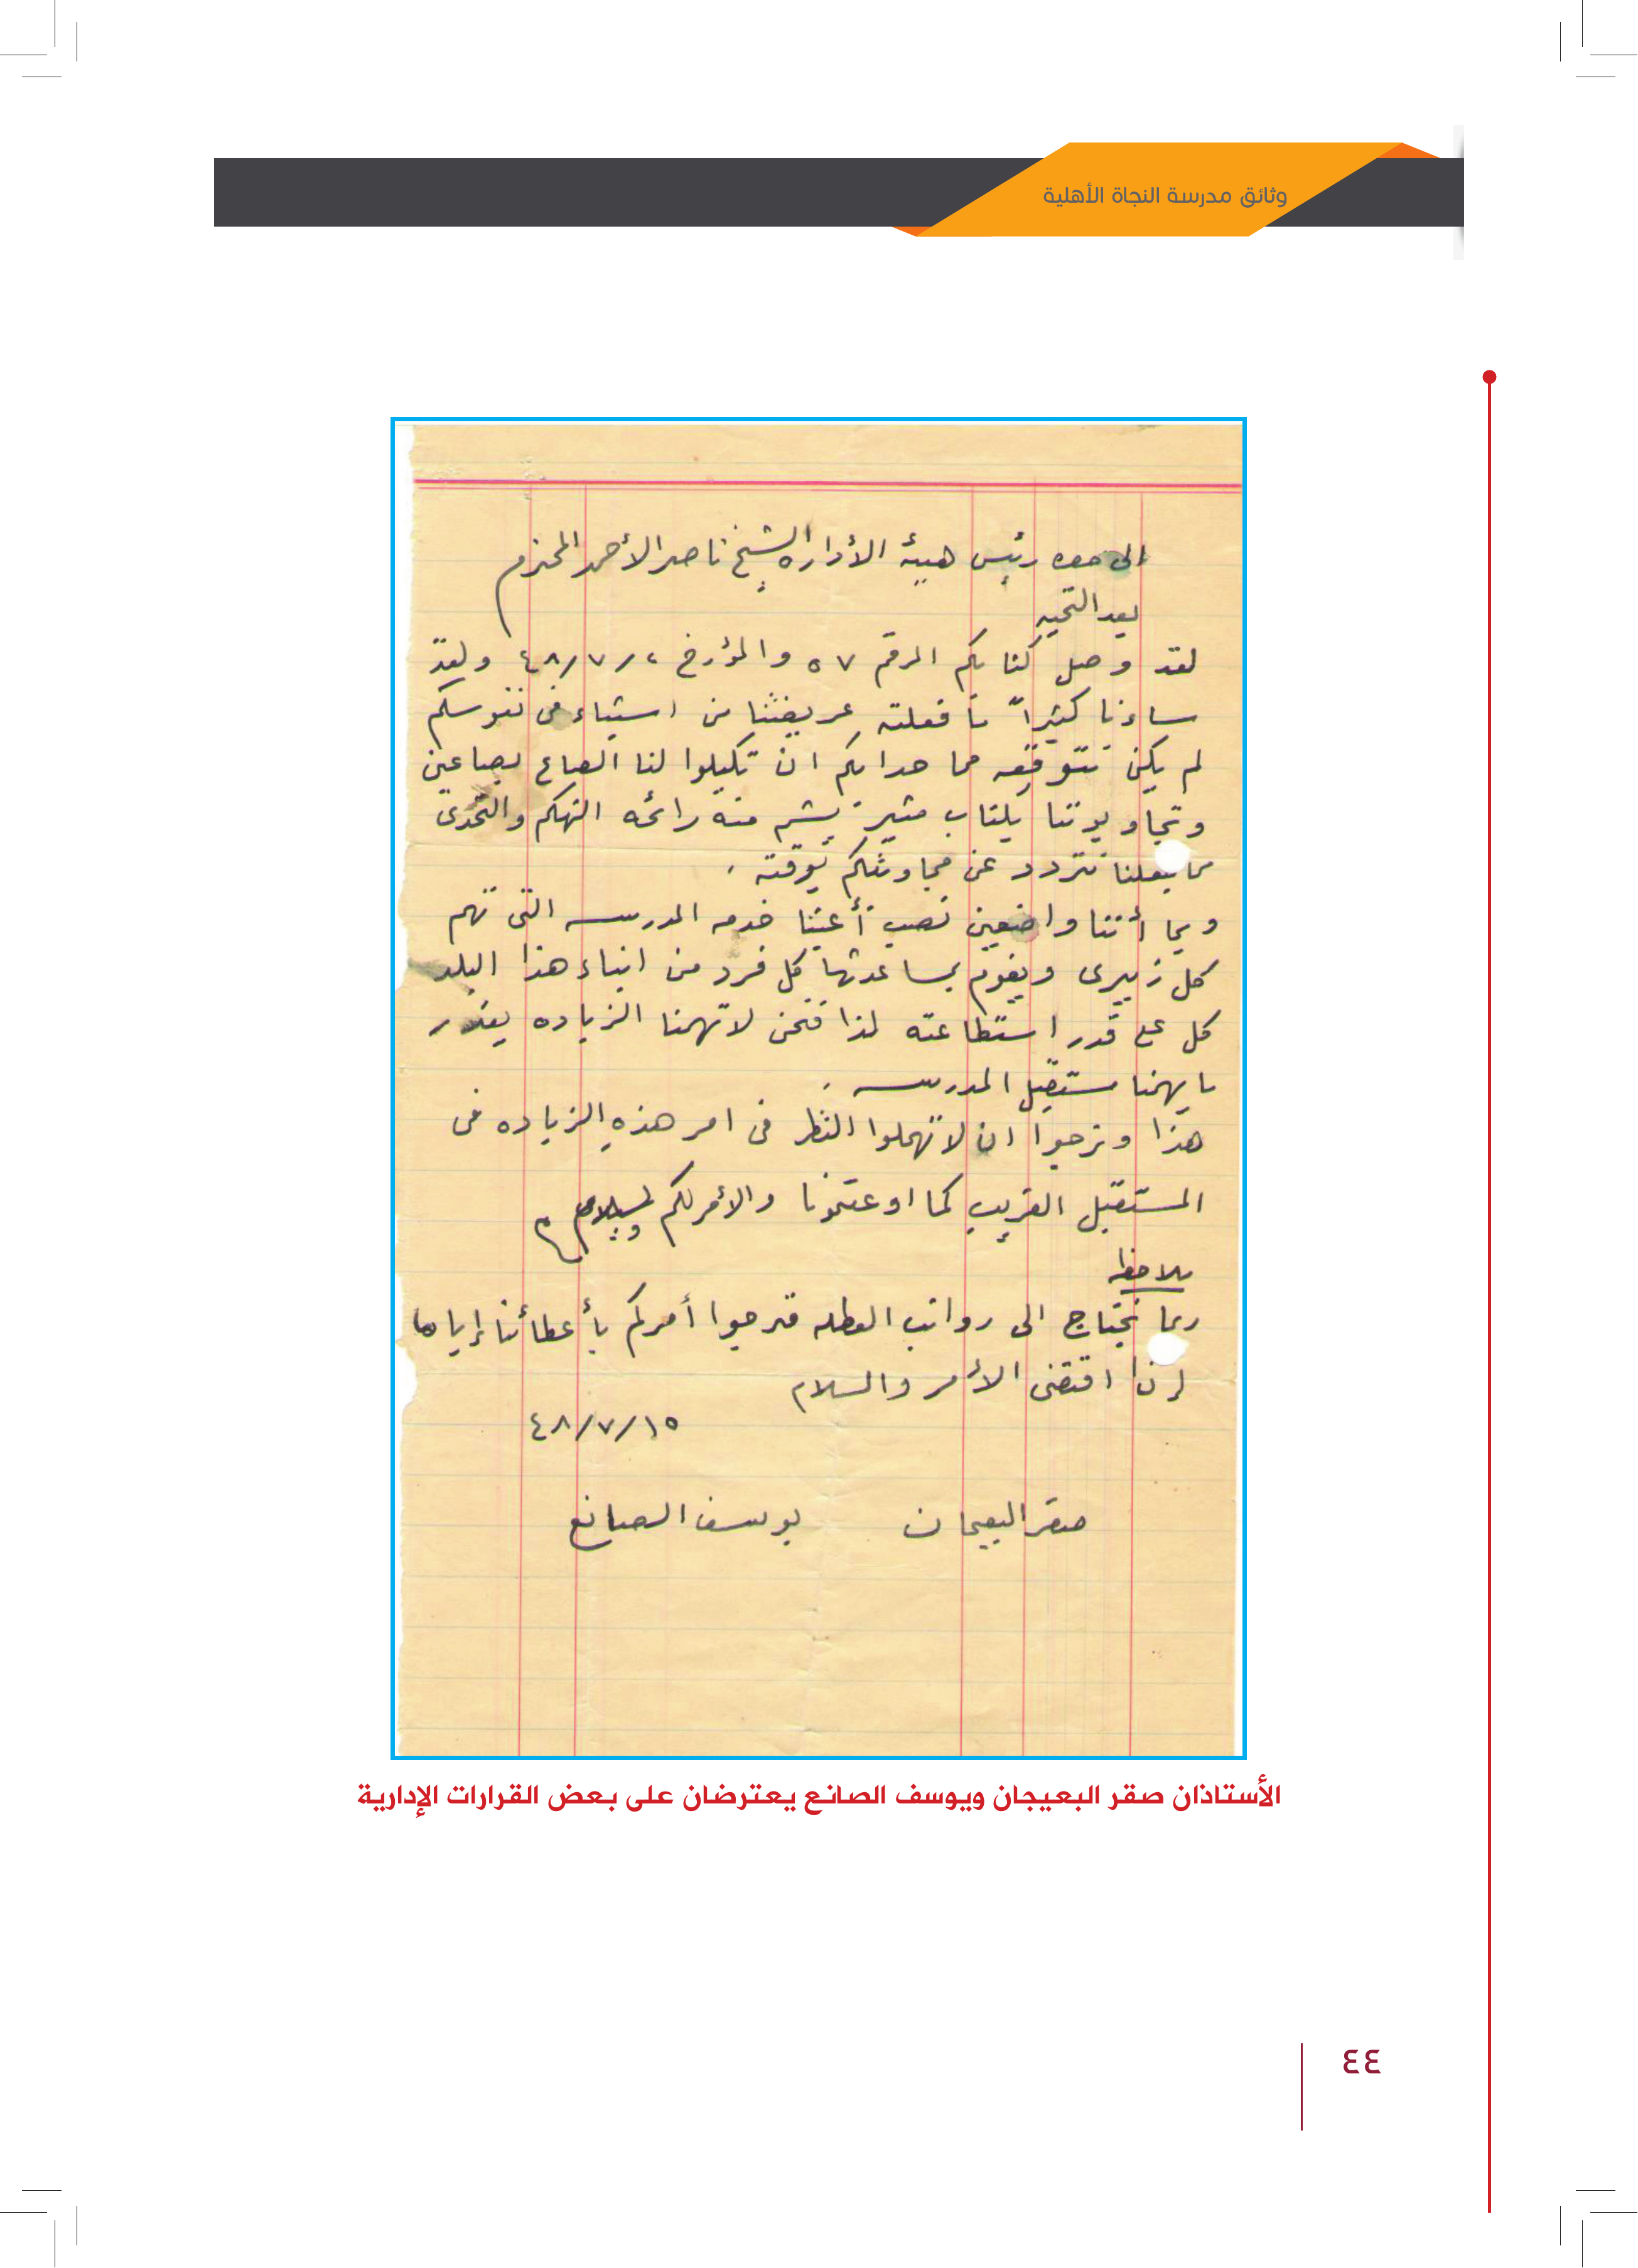 وثائق مدرسة النجاة الأهلية
الى حضرة رئيس هيئة الأداره الشيخ ناصر الأحمد المحترم
بعد التحيه
لقد وصل كتابكم المرقم ٥٧ والمؤرخ ٤٨/٧/ ولقد
ساءنا كثيراً ما فعلته عريضتنا من استياء في نفوسكم
لم يكن نتوقعه مما حدا بكم ان تكيلوا لنا الصاع بصاعين
وتجاوبوننا بكتاب مثير يشم منه رائحه التهكم والتحدى
مما يجعلنا نتردد عن مجاوبتكم بوقته .
وبما أننا واضعين نصب أعيننا خدمه المدرسه التى تهم
كل زبيرى ويقوم بمساعدتها كل فرد من ابناء هذا البلد
كل على قدر استطاعته لذا فنحن لا تهمنا الزياده بقدر
ما يهمنا مستقبل المدرسه .
هذا ونرجوا ان لا تهملوا النظر فى امر هذه الزياده فى
المستقبل القريب كما اوعدتمونا والأمر لكم والسلام
ملاحظه
ربما نحتاج الى رواتب العطله فنرجوا أمركم بأعطائنا إياها
إذا اقتضى الأمر والسلام
٤٨/٧/١٥
صقر البعيجان يوسف الصانع
الأستاذان صقر البعيجان ويوسف الصانع يعترضان على بعض القرارات الإدارية
٤٤